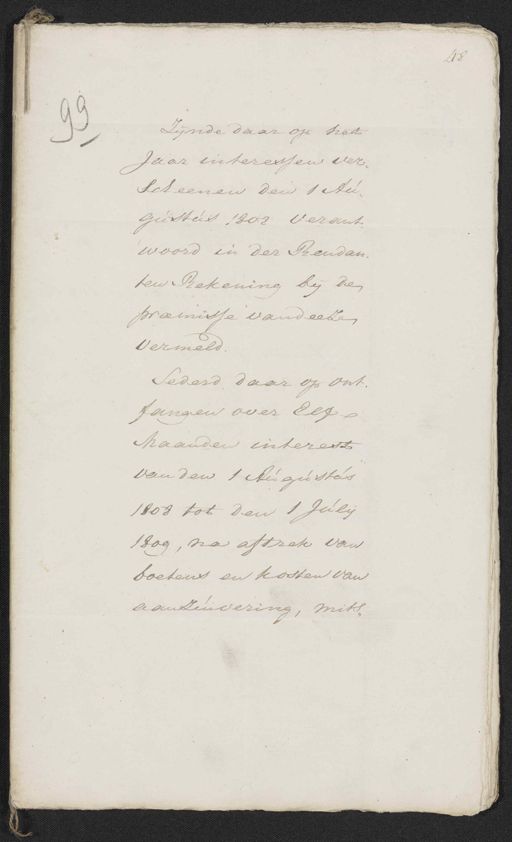 48
99
Zÿnde daar op het
Jaar interessen ver-
scheenen den 1 Au-
gustus 1808 verant
woord in der Rendan-
ten Rekening bÿ de
præmisse van deeze
vermeld.
Sederd daar op ont-
fangen over Elf
Maanden interest
van den 1 Augustus
1808 tot den 1 Julÿ
1809, na aftrek van
boetens en kosten van
aanzuivering, mits